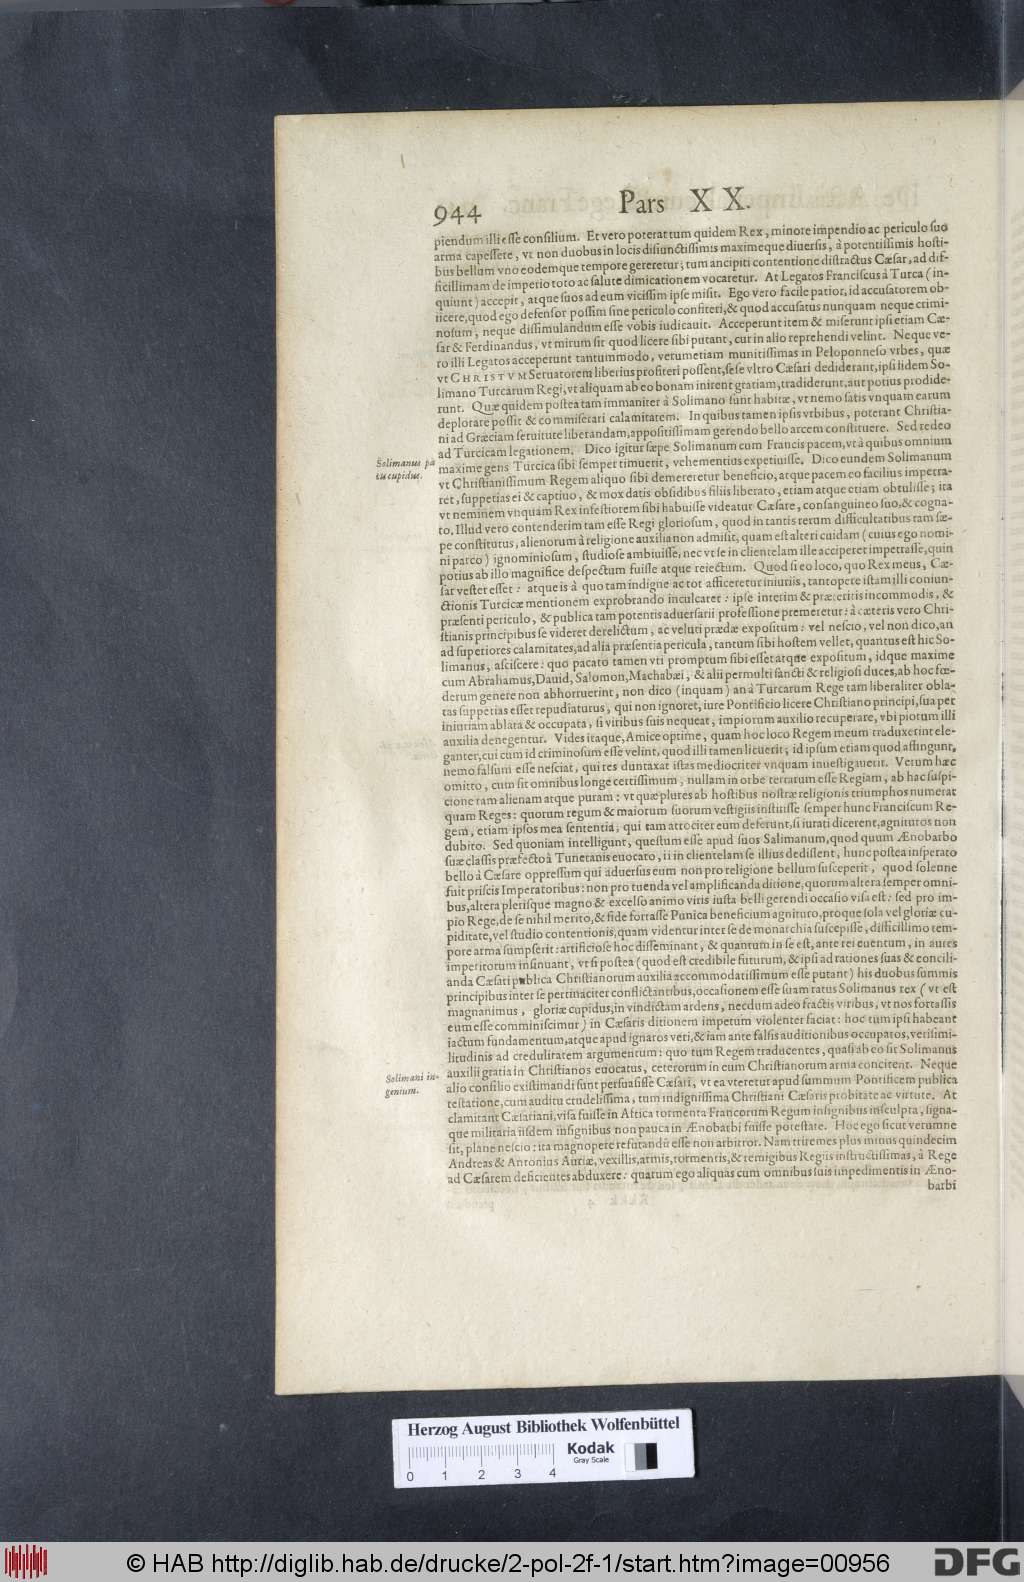 944 Pars XX.
piendum illi esse consilium. Et vero poterat tum quidem Rex, minore impendio ac periculo suo
arma capessere, vt non duobus in locis disiunctissimis maximeque diuersis, à potentissimis hosti-
bus bellum vno eodemque tempore gereretur; tum ancipiti contentione distractus Cæsar, ad dif-
ficillimam de imperio toto ac salute dimicationem vocaretur. At Legatos Franciscus à Turca (in-
quiunt) accepit, atque suos ad eum vicissim ipse misit. Ego vero facile patior, id accusatorem ob-
iicere, quod ego defensor possim sine periculo confiteri, & quod accusatus nunquam neque crimi-
nosum, neque dissimulandum esse vobis iudicauit. Acceperunt item & miserunt ipsi etiam Cæ-
sar & Ferdinandus, vt mirum sit quod licere sibi putant, cur in alio reprehendi velint. Neque ve-
ro illi Legatos acceperunt tantummodo, verumetiam munitissimas in Peloponneso vrbes, quæ
vt CHRISTVM Seruatorem liberius profiteri possent, sese vltro Cæsari dediderant, ipsi fidem So-
limano Turcarum Regi, vt aliquam ab eo bonam inirent gratiam, tradiderunt, aut potius prodide-
runt. Quæ quidem postea tam immaniter à Solimano sunt habitæ, vt nemo satis vnquam earum
deplorare possit & commiserari calamitatem. In quibus tamen ipsis vrbibus, poterant Christia-
ni ad Græciam seruitute liberandam, appositissimam gerendo bello arcem constituere. Sed redeo
ad Turcicam legationem. Dico igitur sæpe Solimanum cum Francis pacem, vt à quibus omnium
Solimanus pa
cis cupidus.
maxime gens Turcica sibi semper timuerit, vehementius expetiuisse. Dico eundem Solimanum
vt Christianissimum Regem aliquo sibi demereretur beneficio, atque pacem eo facilius impetra-
ret, suppetias ei & captiuo, & mox datis obsidibus filiis liberato, etiam atque etiam obtulisse; ita
vt neminem vnquam Rex infestiorem sibi habuisse videatur Cæsare, consanguineo suo, & cogna-
to. Illud vero contenderim tam esse Regi gloriosum, quod in tantis rerum difficultatibus tam sæ-
pe constitutus, alienorum à religione auxilia non admisit, quam est alteri cuidam (cuius ego nomi-
ni parco) ignominiosum, studiose ambiuisse, nec vt se in clientelam ille acciperet impetrasse, quin
potius ab illo magnifice despectum fuisse atque reiectum. Quod si eo loco, quo Rex meus, Cæ-
sar vester esset: atque is à quo tam indigne ac tot afficeretur iniuriis, tantopere istam illi coniun-
ctionis Turcicæ mentionem exprobrando inculcaret: ipse interim & præteritis incommodis, &
præsenti periculo, & publica tam potentis aduersarii professione premeretur: à cæteris vero Chri-
stianis principibus se videret derelictum, ac veluti prædæ expositum: vel nescio, vel non dico, an
ad superiores calamitates, ad alia præsentia pericula, tantum sibi hostem vellet, quantus est hic So-
limanus, asciscere: quo pacato tamen vti promptum sibi esset atque expositum, idque maxime
cum Abrahamus, Dauid, Salomon, Machabæi, & alii permulti sancti & religiosi duces, ab hoc fœ-
derum genere non abhorruerint, non dico (inquam) an à Turcarum Rege tam liberaliter obla-
tas suppetias esset repudiaturus, qui non ignoret, iure Pontificio licere Christiano principi, sua per
iniuriam ablata & occupata, si viribus suis nequeat, impiorum auxilio recuperare, vbi piorum illi
auxilia denegentur. Vides itaque, Amice optime, quam hoc loco Regem meum traduxerint ele-
ganter, cui cum id criminosum esse velint, quod illi tamen licuerit; id ipsum etiam quod affingunt,
nemo falsum esse nesciat, qui res duntaxat istas mediocriter vnquam inuestigauerit. Verum hæc
omitto, cum sit omnibus longe certissimum, nullam in orbe terrarum esse Regiam, ab hac suspi-
cione tam alienam atque puram: vt quæ plures ab hostibus nostræ religionis triumphos numerat
quam Reges: quorum regum & maiorum suorum vestigiis institisse semper hunc Franciscum Re-
gem, etiam ipsos mea sententia, qui tam atrociter eum deferunt, si iurati dicerent, agnituros non
dubito. Sed quoniam intelligunt, questum esse apud suos Salimanum, quod quum Ænobarbo
suæ classis præfecto à Tunetanis euocato, ii in clientelam se illius dedissent, hunc postea insperato
bello à Cæsare oppressum qui aduersus eum non pro religione bellum susceperit, quod solenne
fuit priscis Imperatoribus: non pro tuenda vel amplificanda ditione, quorum altera semper omni-
bus, altera plerisque magno & excelso animo viris iusta belli gerendi occasio visa est: sed pro im-
pio Rege, de se nihil merito, & fide fortasse Punica beneficium agnituro, proque sola vel gloriæ cu-
piditate, vel studio contentionis, quam videntur inter se de monarchia suscepisse, difficillimo tem-
pore arma sumpserit: artificiose hoc disseminant, & quantum in se est, ante rei euentum, in aures
imperitorum insinuant, vt si postea (quod est credibile futurum, & ipsi ad rationes suas & concili-
anda Cæsari publica Christianorum auxilia accommodatissimum esse putant) his duobus summis
principibus inter se pertinaciter conflictantibus, occasionem esse suam ratus Solimanus rex (vt est
magnanimus, gloriæ cupidus, in vindictam ardens, necdum adeo fractis viribus, vt nos fortassis
eum esse comminiscimur) in Cæsaris ditionem impetum violenter faciat: hoc tum ipsi habeant
iactum fundamentum, atque apud ignaros veri, & iam ante falsis auditionibus occupatos, verisimi-
litudinis ad credulitatem argumentum: quo tum Regem traducentes, quasi ab eo sit Solimanus
Solimani in-
genium.
auxilii gratia in Christianos euocatus, ceterorum in eum Christianorum arma concitent. Neque
alio consilio existimandi sunt persuasisse Cæsari, vt ea vteretur apud summum Pontificem publica
testatione, cum auditu crudelissima, tum indignissima Christiani Cæsaris probitate ac virtute. At
clamitant Cæsariani, visa fuisse in Africa tormenta Francorum Regum insignibus insculpta, signa-
que militaria iisdem insignibus non pauca in Ænobarbi fuisse potestate. Hoc ego sicut verumne
sit, plane nescio: ita magnopere refutandũ esse non arbitror. Nam triremes plus minus quindecim
Andreas & Antonius Auriæ, vexillis, armis, tormentis, & remigibus Regiis instructissimas, à Rege
ad Cæsarem deficientes abduxere: quarum ego aliquas cum omnibus suis impedimentis in Æno-
barbi
Herzog August Bibliothek Wolfenbüttel
0 1 2 3 4
Kodak
Gray Scale
© HAB http://diglib.hab.de/drucke/2-pol-2f-1/start.htm?image=00956
DFG